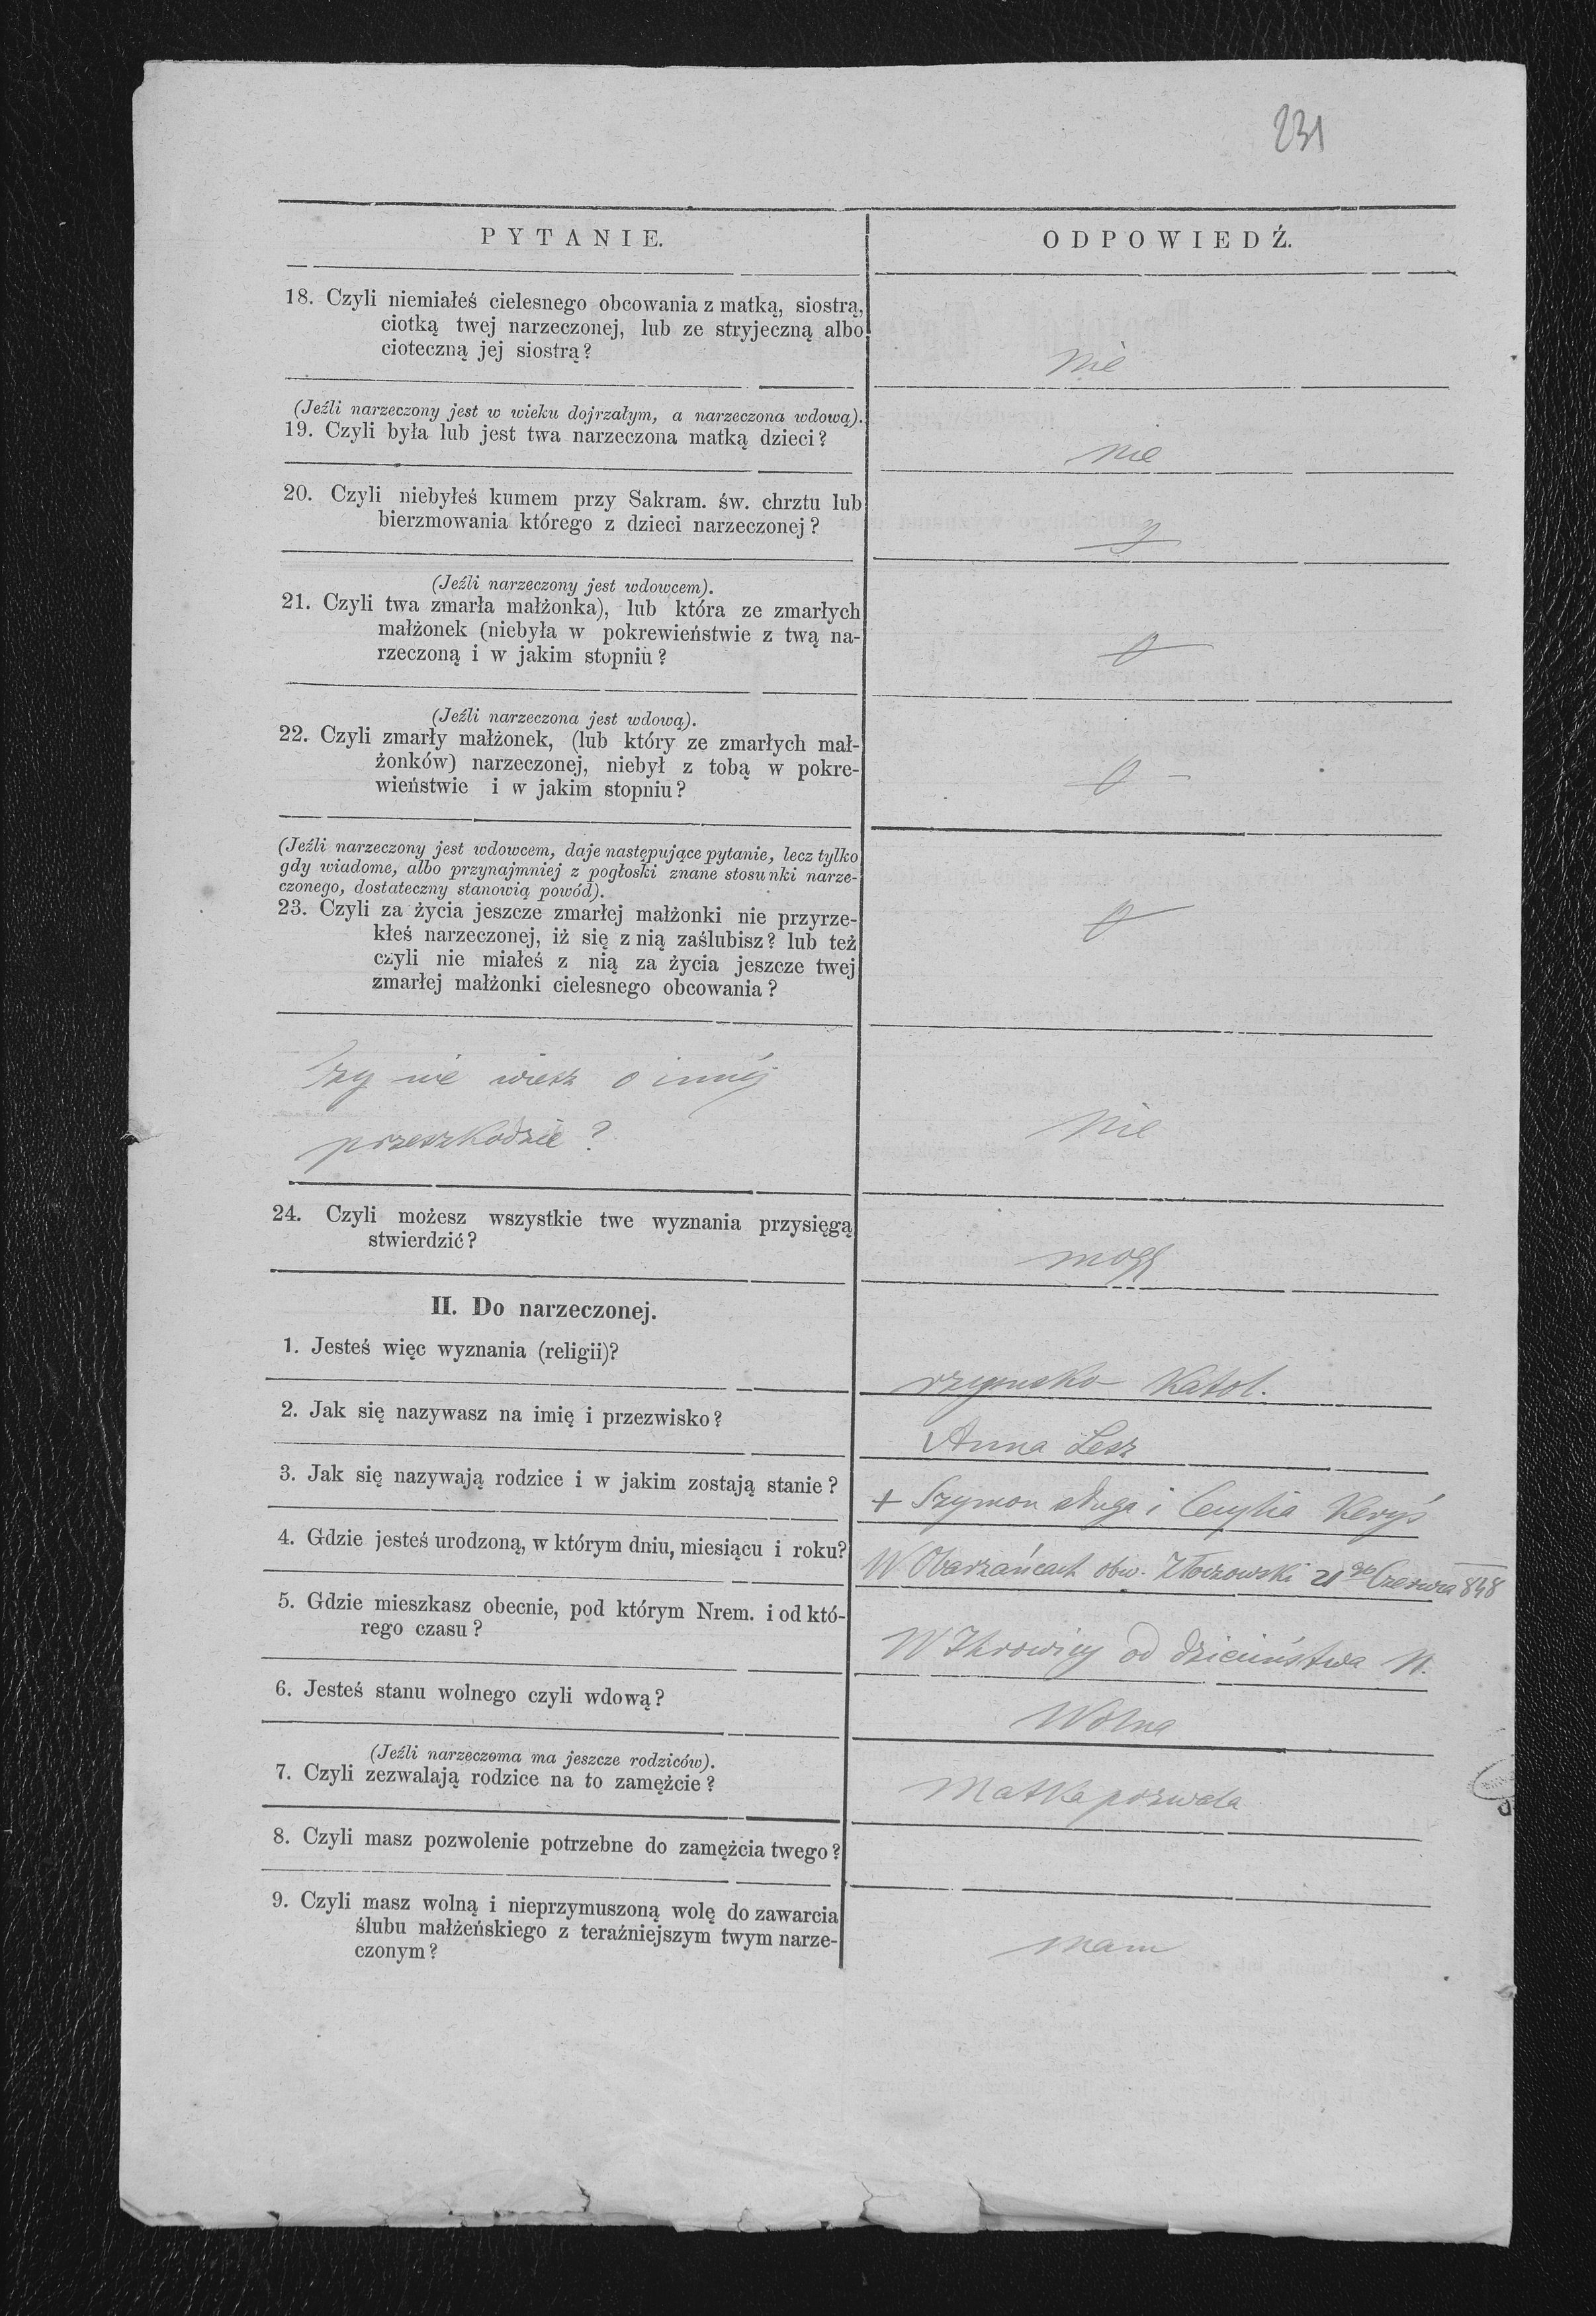 231
PYTANIE.
ODPOWIEDŹ.
18. Czyli niemiałeś cielesnego obcowania z matką, siostrą,
ciotką twej narzeczonej, lub ze stryjeczną albo
cioteczną jej siostrą?
Nie
(Jeźli narzeczony jest w wieku dojrzałym, a narzeczona wdową).
19. Czyli była lub jest twa narzeczona matką dzieci?
nie
20. Czyli niebyłeś kumem przy Sakram. św. chrztu lub
bierzmowania którego z dzieci narzeczonej?
(Jeźli narzeczony jest wdowcem).
21. Czyli twa zmarła małżonka), lub która ze zmarłych
małżonek (niebyła w pokrewieństwie z twą na-
rzeczoną i w jakim stopniu?
(Jeźli narzeczona jest wdową).
22. Czyli zmarły małżonek, (lub który ze zmarłych mał-
żonków) narzeczonej, niebył z tobą w pokre-
wieństwie i w jakim stopniu?
(Jeźli narzeczony jest wdowcem, daje następujące pytanie, lecz tylko
gdy wiadome, albo przynajmniej z pogłoski znane stosunki narze-
czonego, dostateczny stanowią powód).
23. Czyli za życia jeszcze zmarłej małżonki nie przyrze-
kłeś narzeczonej, iż się z nią zaślubisz? lub też
czyli nie miałeś z nią za życia jeszcze twej
zmarłej małżonki cielesnego obcowania?
Czy nie wiesz o innéj
przeszkodzie?
Nie
24. Czyli możesz wszystkie twe wyznania przysięgą
stwierdzić?
mogę
II. Do narzeczonej.
1. Jesteś więc wyznania (religii)?
rzymsko Katol.
2. Jak się nazywasz na imię i przezwisko?
Anna Lesz
3. Jak się nazywają rodzice i w jakim zostają stanie?
+ Szymon sługa i Cecylia Keryś
4. Gdzie jesteś urodzoną, w którym dniu, miesiącu i roku?
W Obarzańcach obw. Złoczowski 21go Czerwca 848
5. Gdzie mieszkasz obecnie, pod którym Nrem. i od któ-
rego czasu?
W Ihrowicy od dzieciństwa N.
6. Jesteś stanu wolnego czyli wdową?
Wolna
(Jeźli narzeczoma ma jeszcze rodziców).
7. Czyli zezwalają rodzice na to zamężcie?
Matka pozwala
8. Czyli masz pozwolenie potrzebne do zamężcia twego?
9. Czyli masz wolną i nieprzymuszoną wolę do zawarcia
ślubu małżeńskiego z teraźniejszym twym narze-
czonym?
mam